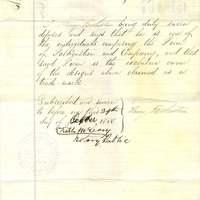 being duly sworn
deposes and says that he is one of
the individuals composing the Firm
of and Company, and that
said Firm is the exclusive owner
of the designs above claimed as a
trade-mark.
Subscribed and sworn
to before me this 29th
day of 18
Notary Public